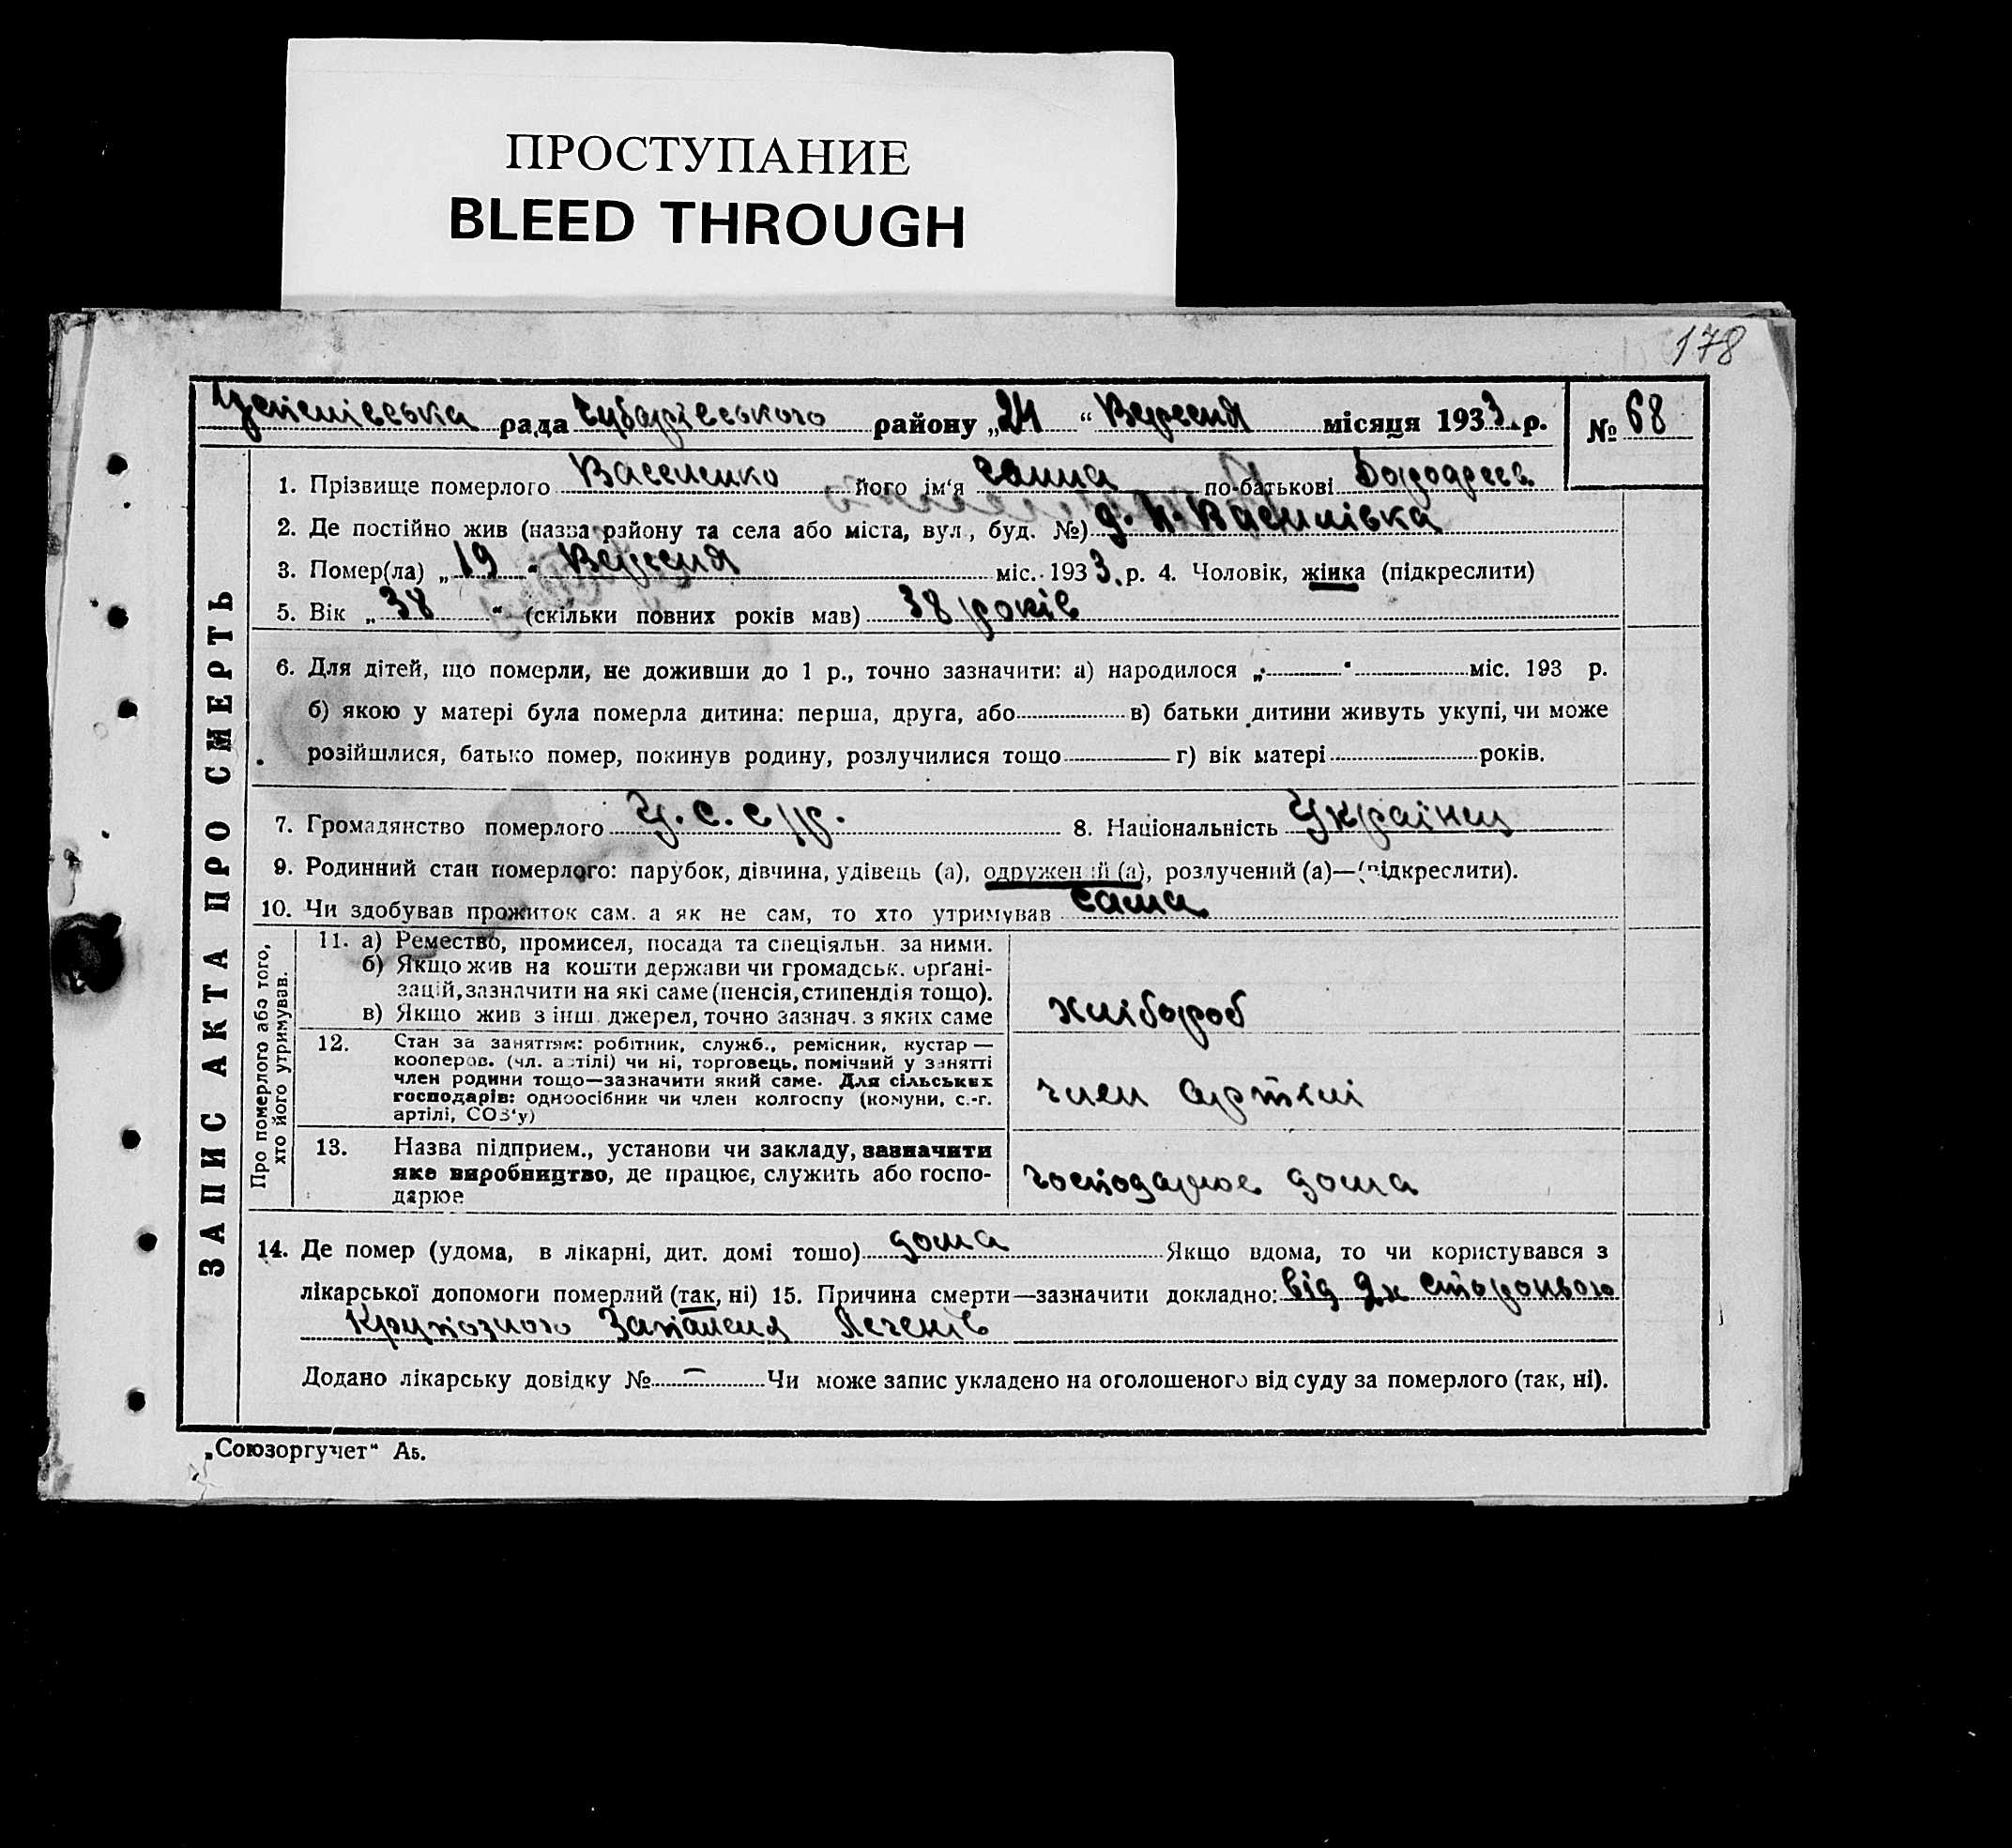 ПРОСТУПАНИЕ
BLEED THROUGH
178
рада Чубарівського району „24“ Вересня місяця 1933 р. № 68
ЗАПИС АКТА ПРО СМЕРТЬ
1. Прізвище померлого Василенко його ім‘я по-батькові
2. Де постійно жив (назва району та села або міста, вул., буд. №) Василівка
3. Помер(ла) „19“ Вересня міс. 1933 р. 4. Чоловік, жінка (підкреслити)
5. Вік „38“ (скільки повних років мав) 38 років
6. Для дітей, що померли, не доживши до 1 р., точно зазначити: а) народилося „ “ міс. 193 р.
б) якою у матері була померла дитина: перша, друга, або в) батьки дитини живуть укупі, чи може
розійшлися, батько помер, покинув родину, розлучилися тощо г) вік матері років.
7. Громадянство померлого У.С.С.Р. 8. Національність Українец
9. Родинний стан померлого: парубок, дівчина, удівець (а), одружений (а), розлучений (а)—(підкреслити).
10. Чи здобував прожиток сам, а як не сам, то хто утримував сама
Про померлого або того,
хто його утримував.
11. а) Ремество, промисел, посада та спеціяльн. за ними.
б) Якщо жив на кошти держави чи громадськ. орґані-
зацій, зазначити на які саме (пенсія, стипендія тощо).
в) Якщо жив з інш. джерел, точно зазнач. з яких саме
хлібороб
12. Стан за заняттям: робітник, служб., ремісник, кустар—
кооперов. (чл. артілі) чи ні, торговець, помічний у занятті
член родини тощо—зазначити який саме. Для сільських
господарів: одноосібник чи член колгоспу (комуни, с.-г.
артілі, СОЗ‘у)
член артилі
13. Назва підприєм., установи чи закладу, зазначити
яке виробництво, де працює, служить або госпо-
дарює
господарює дома
14. Де помер (удома, в лікарні, дит. домі тощо) дома Якщо вдома, то чи користувався з
лікарської допомоги померлий (так, ні) 15. Причина смерти—зазначити докладно: від 2х сторонього
Крупозного Запаленя Легенів
Додано лікарську довідку № — Чи може запис укладено на оголошеного від суду за померлого (так, ні).
„Союзоргучет“ А5.